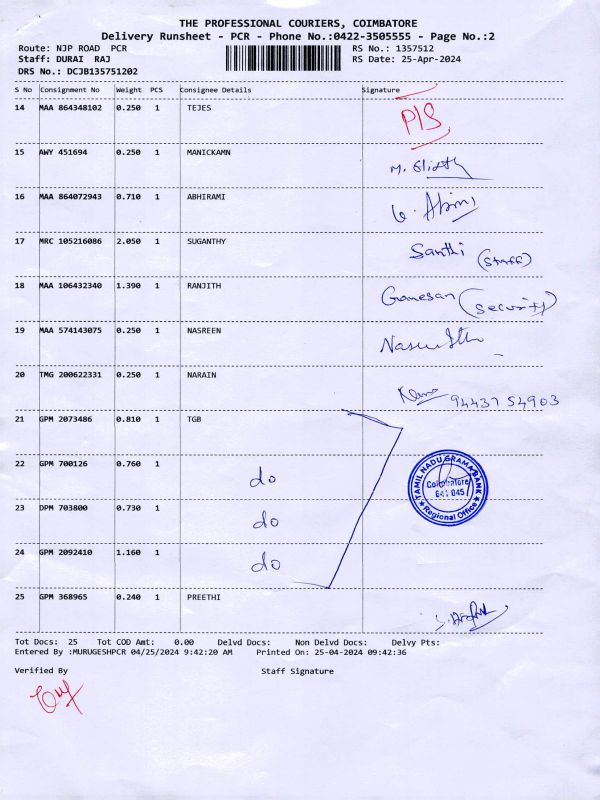 THE PROFESSIONAL COURIERS, COIMBATORE
Delivery Runsheet - PCR - Phone No.:0422-3505555 - Page No.:2
Route: NJP ROAD PCR RS No.: 1357512
Staff: DURAI RAJ RS Date: 25-Apr-2024
DRS No.: DCJB135751202
S No Consignment No Weight PCS Consignee Details Signature
14 MAA 864348102 0.250 1 TEJES P/S
15 AWY 451694 0.250 1 MANICKAMN
16 MAA 864072943 0.710 1 ABHIRAMI
17 MRC 105216086 2.050 1 SUGANTHY Santhi (Staff)
18 MAA 106432340 1.390 1 RANJITH Ganesan (Security)
19 MAA 574143075 0.250 1 NASREEN
20 TMG 200622331 0.250 1 NARAIN 94437 54903
21 GPM 2073486 0.810 1 TGB
22 GPM 700126 0.760 1 do
23 DPM 703800 0.730 1 do
24 GPM 2092410 1.160 1 do
TAMIL NADU GRAMA BANK
Coimbatore
641 045
Regional Office
25 GPM 368965 0.240 1 PREETHI
Tot Docs: 25 Tot COD Amt: 0.00 Delvd Docs: Non Delvd Docs: Delvy Pts:
Entered By :MURUGESHPCR 04/25/2024 9:42:20 AM Printed On: 25-04-2024 09:42:36
Verified By Staff Signature